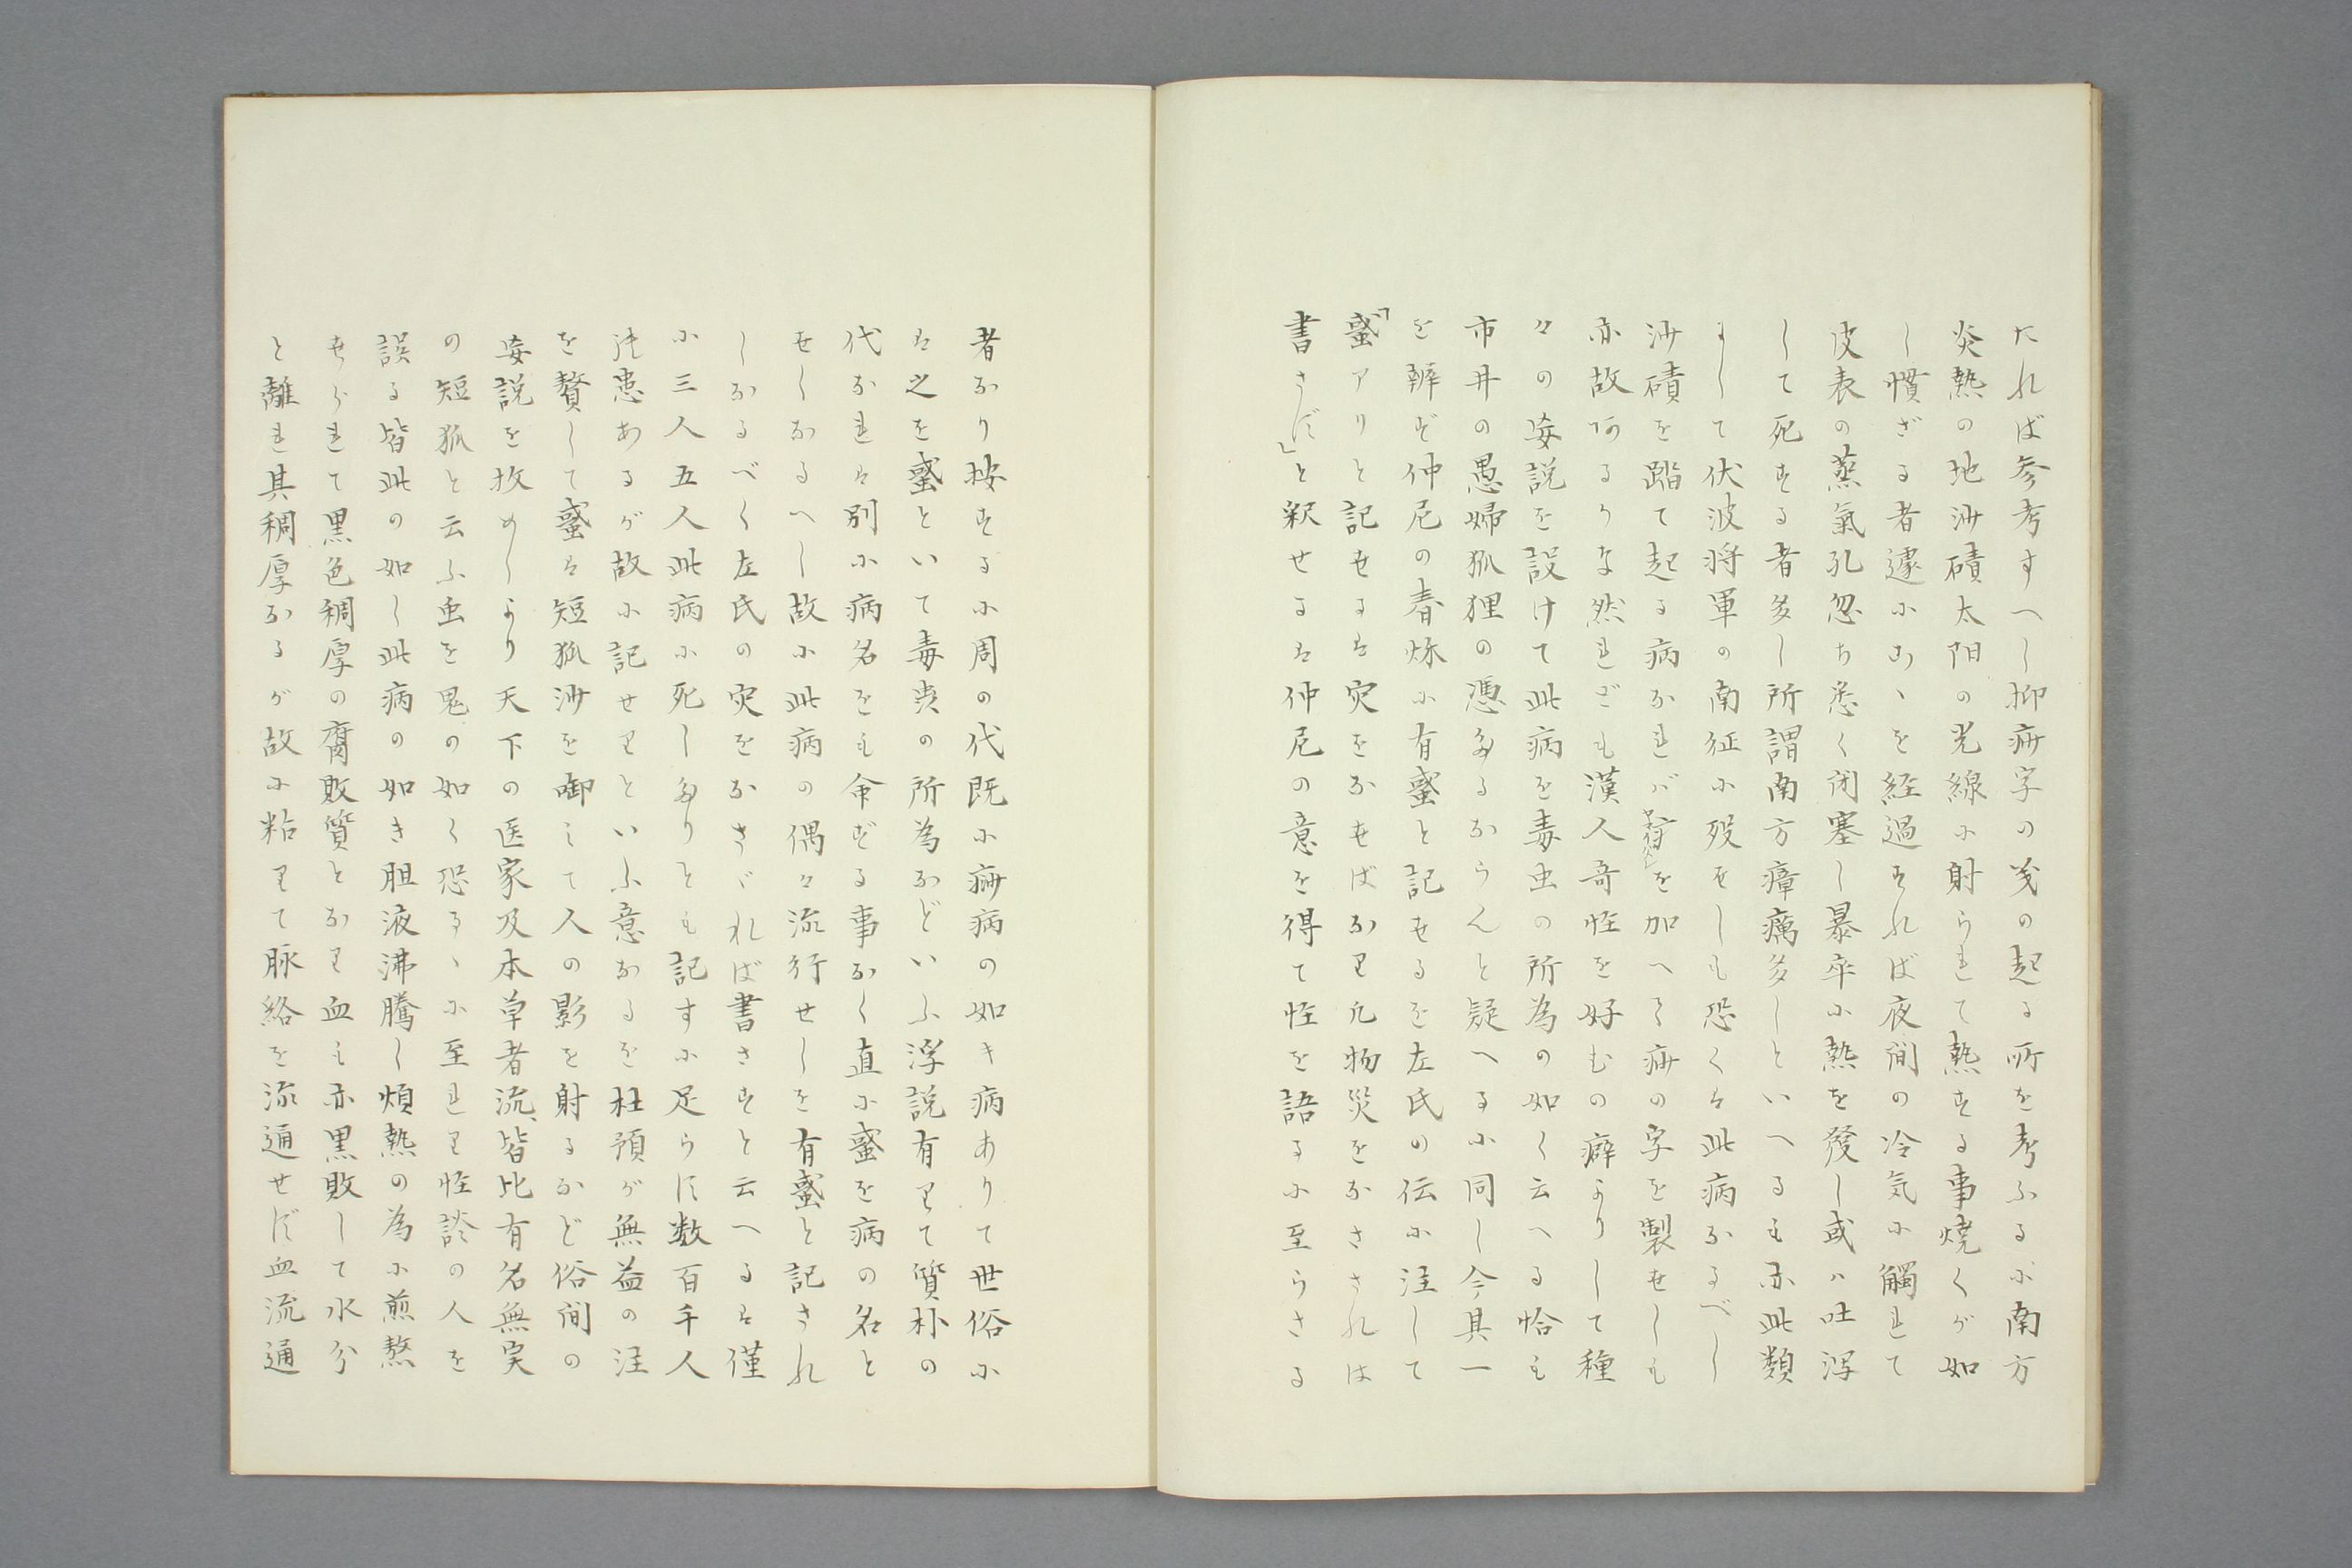 たれば参考すへし抑痧字の义の起る所を考ふるに南方
炎熱の地沙磧太阳の光線に射られて熱する事焼くが如
し慣ざる者遽にこゝを経過すれば夜間の冷気に觸れて
皮表の蒸氣孔忽ち悉く闭塞し暴卒に熱を發し或ハ吐泻
して死する者多し所謂南方瘴癘多しといへるも亦此類
にして伏波将軍の南征に歿せしも恐くは此病なるべし
沙磧を踏て起る病なれバ疒を加へて痧の字を製せしも
亦故あるうな然れども漢人奇怪を好むの癖よりして種
々の妄説を設けて此病を毒虫の所為の如く云へる恰も
市井の愚婦狐狸の憑たるならんと疑へるに同し今其一
を辨ぞ仲尼の春秌に有蜮と記せるを左氏の伝に注して
「蜮アリと記せるは灾をなせばなり凡物災をなさされは
書さず」と釈せるは仲尼の意を得て怪を語るに至らさる
者なり按するに周の代既に痧病の如キ病ありて世俗に
は之を蜮といて毒虫の所為などいふ浮説有りて質朴の
代なれは別に病名をも命ずる事なく直に蜮を病の名と
せしなるへし故に此病の偶々流行せしを有蜮と記され
しなるべく左氏の灾をなさゞれば書さすと云へるは僅
に三人五人此病に死したりとも記すに足らず数百千人
は患あるが故に記せりといふ意なるを杜預が無益の注
を贅して蜮は短狐沙を啣ミて人の影を射るなど俗间の
妄説を放めしより天下の医家及本草者流、皆比有名無实
の短狐と云ふ虫を鬼の如く恐るゝに至れり怪談の人を
誤る皆此の如し此病の如き胆液沸騰し煩熱の為に煎熬
せられて黒色稠厚の腐敗質となり血も亦黒敗して水分
と離れ其稠厚なるが故に粘りて脉絡を流通せず血流通